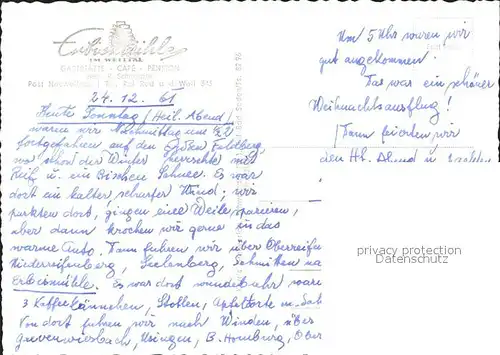 Erbismühle
IM WEILTAL
GASTSTÄTTE - CAFÉ - PENSION
24.12.61
Heute Sonntag (Heil. Abend)
waren wir Nachmittag um
fortgefahren auf den Großen Feldberg,
wo schon der Winter herrschte mit
Reif u. ein bischen Schnee. Es war
dort ein kalter scharfer Wind; wir
parkten dort, gingen eine Weile spazieren,
aber dann krochen wir gerne in das
warme Auto. Dann fuhren wir über Oberreifen
Niederreifenberg, Seelenberg, Schmitten na
Erbismühle. Es war dort wunderbar warm
3 Kaffeekännchen, Stollen, Apfeltorte m. Sah
Von dort fuhren wir nach Winden, über
Grävenwiesbach, Usingen, B. Homburg, Ober
Um 5 Uhr waren wir
gut angekommen.
Das war ein schöner
Weihnachtsausflug!
Dann feierten wir
den Hl. Abend u.
privacy protection
Datenschutz